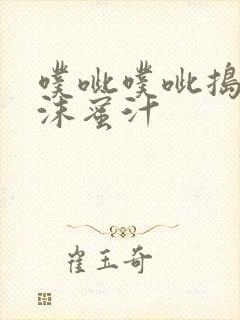 噗呲噗呲捣
沫蜜汁
崔玉奇